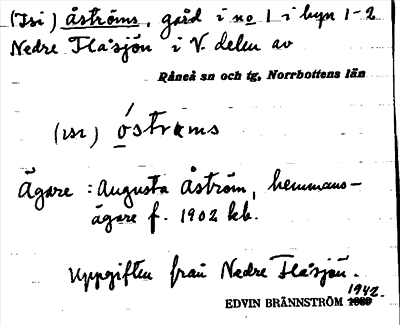 (Isi) åströms, gård i no 1 i byn 1-2
Nedre Flåsjön i V. delen av
Råneå sn och tg, Norrbottens län
(ısı) óstrøms
Ägare : Augusta Åström, hemmans-
ägare f. 1902 kb.
Uppgiften från Nedre Flåsjön.
1942.
EDVIN BRÄNNSTRÖM 1939